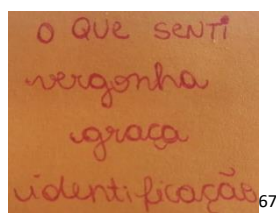 O QUE SENTI
vergonha
graça
identificação
67